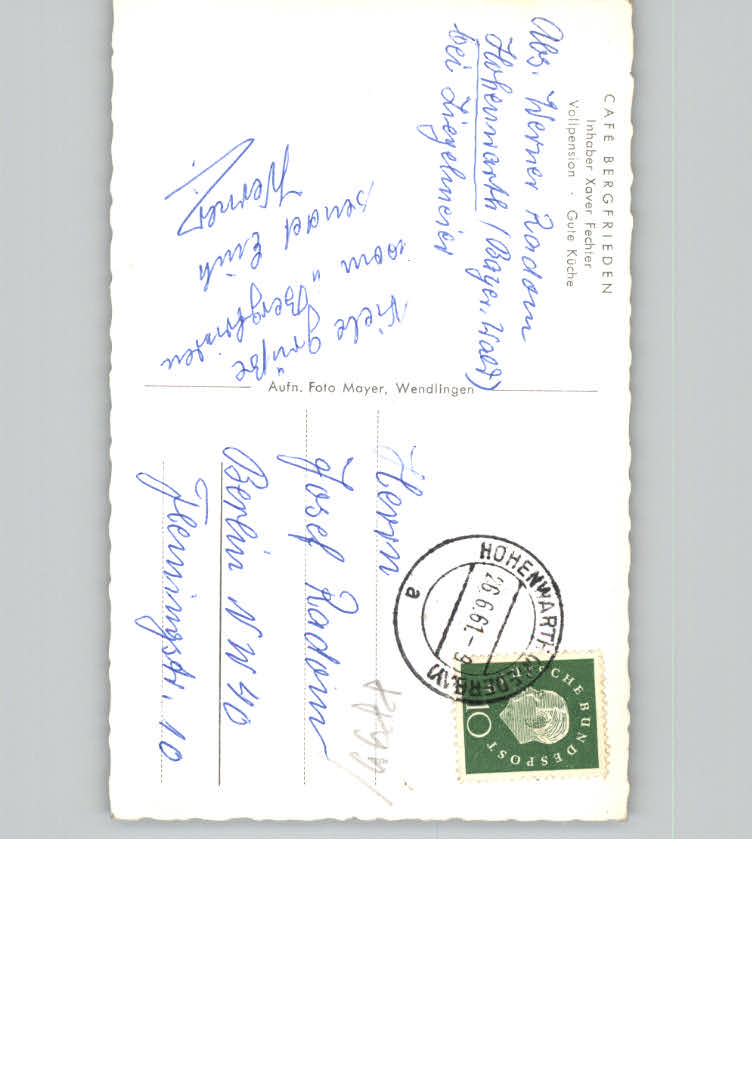 CAFE BERGFRIEDEN
Inhaber Xaver Fechter
Vollpension · Gute Küche
Abs. Werner Radom
Hohenwarth (Bayer. Wald)
bei Ziegelmeier
Viele Grüße
vom "Bergfrieden"
sendet Euch
Werner
Aufn. Foto Mayer, Wendlingen
HOHENWARTH
(NIEDERBAY)
26.6.61.-9
a
DEUTSCHE BUNDESPOST
10
Herrn
Josef Radom
Berlin NW 40
Flemingstr. 10